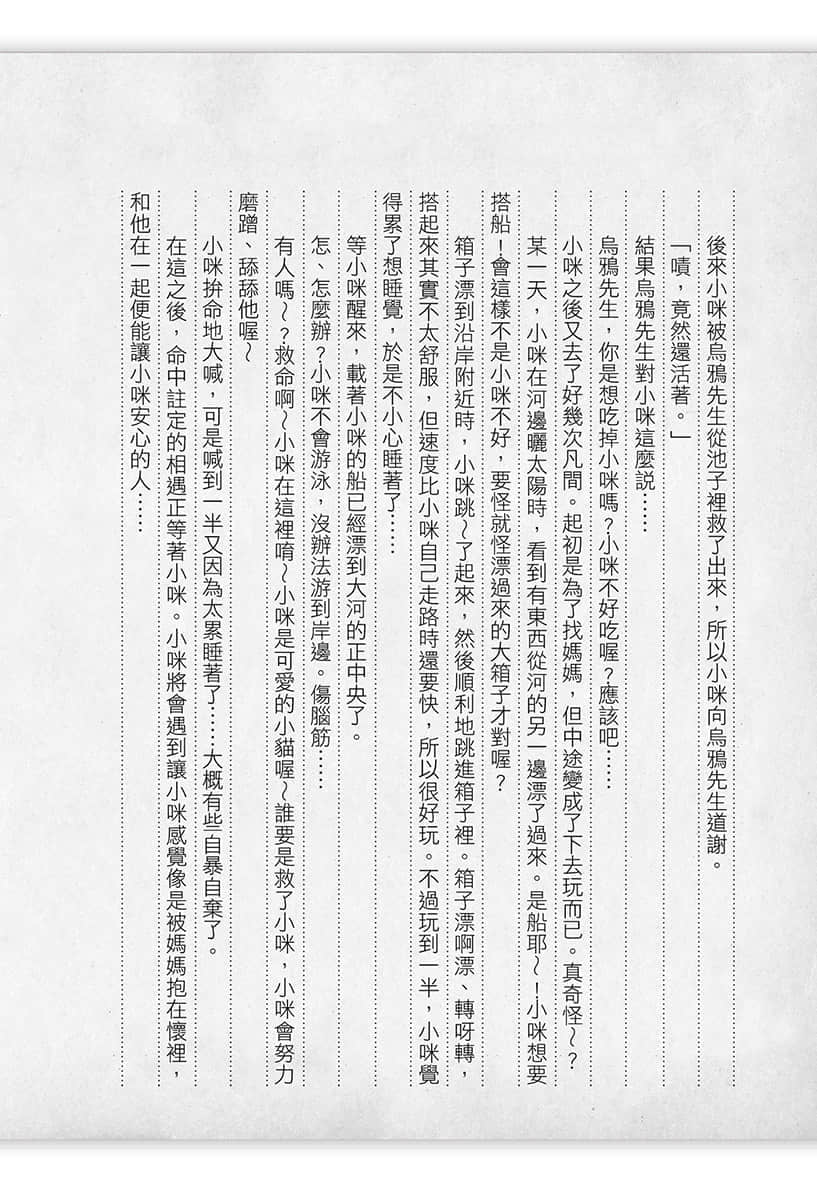 後來小咪被烏鴉先生從池子裡救了出來，所以小咪向烏鴉先生道謝。
「嘖，竟然還活著。」
結果烏鴉先生對小咪這麼說……
烏鴉先生，你是想吃掉小咪嗎？小咪不好吃喔？應該吧……
小咪之後又去了好幾次凡間。起初是為了找媽媽，但中途變成了下去玩而已。真奇怪～？
某一天，小咪在河邊曬太陽時，看到有東西從河的另一邊漂了過來。是船耶～！小咪想要
搭船！會這樣不是小咪不好，要怪就怪漂過來的大箱子才對喔？
箱子漂到沿岸附近時，小咪跳～了起來，然後順利地跳進箱子裡。箱子漂啊漂、轉呀轉，
搭起來其實不太舒服，但速度比小咪自己走路時還要快，所以很好玩。不過玩到一半，小咪覺
得累了想睡覺，於是不小心睡著了……
等小咪醒來，載著小咪的船已經漂到大河的正中央了。
怎、怎麼辦？小咪不會游泳，沒辦法游到岸邊。傷腦筋……
有人嗎～？救命啊～小咪在這裡唷～小咪是可愛的小貓喔～誰要是救了小咪，小咪會努力
磨蹭、舔舔他喔～
小咪拚命地大喊，可是喊到一半又因為太累睡著了……大概有些自暴自棄了。
在這之後，命中註定的相遇正等著小咪。小咪將會遇到讓小咪感覺像是被媽媽抱在懷裡，
和他在一起便能讓小咪安心的人……